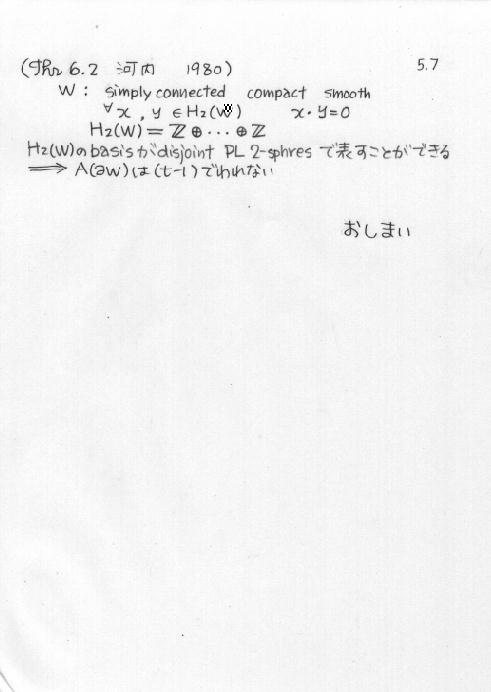 (Thr 6.2 河内 1980) 5.7
W : simply connected compact smooth
∀x , y ∈ H₂(W) x・y=0
H₂(W) = ℤ ⊕ ··· ⊕ ℤ
H₂(W)のbasisがdisjoint PL 2-sphres で表すことができる
⟹ A(∂W)は(t-1)でわれない
おしまい